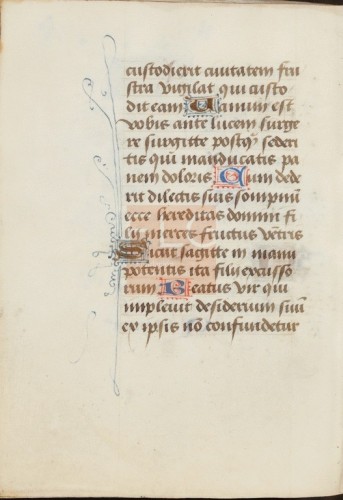 custodierit civitatem fru
stra vigilat qui custo
dit eam Vanum est
vobis ante lucem surge
re surgite postq̃ sederi
tis qui manducatis pa
nem doloris Cum dede
rit dilectis suis sompnũ
ecce hereditas domini fi
lii merces fructus ventris
Sicut sagitte in manu
potentis ita filii excusso
rum Beatus vir qui
implevit desiderium suũ
ex ipsis nõ confundetur